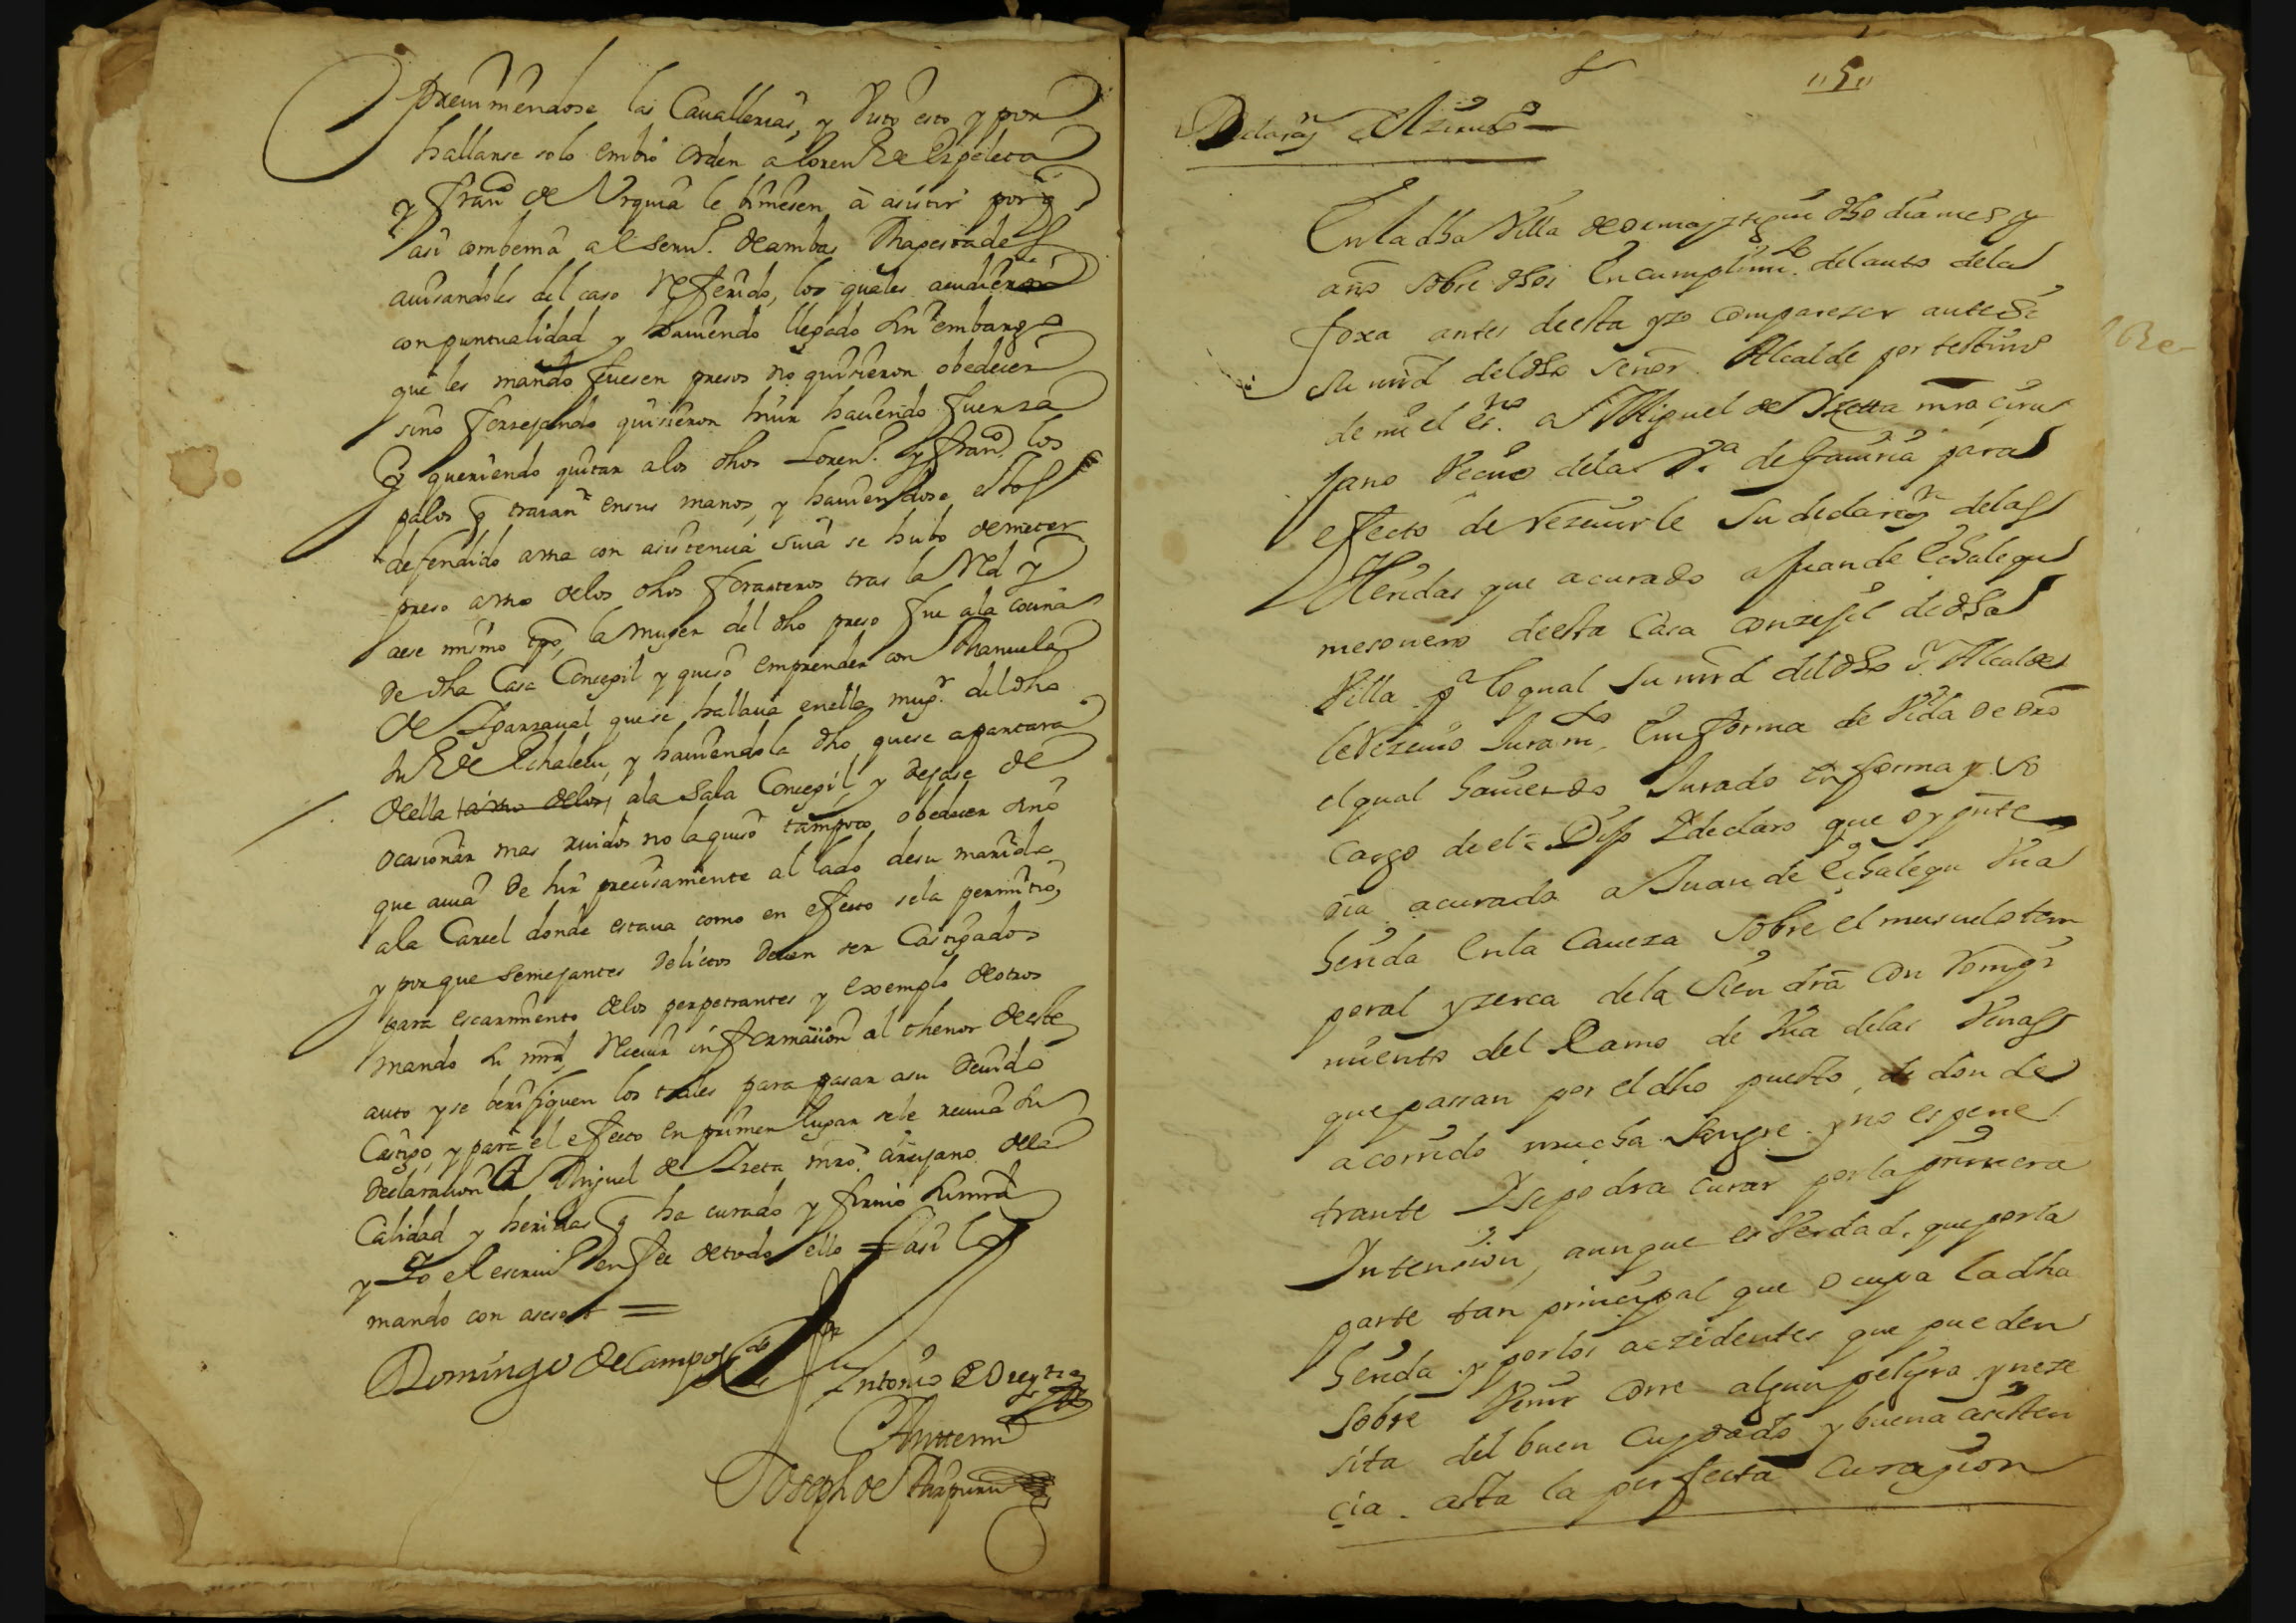 previniendose las Cavallerias, y Visto esto y por
hallarse solo embió orden a Loren.º de Ezpeleta
y Fran.co de Urquia le biniesen à asistir por q
asi combenia al serui.º de ambas Magestades
auisandoles del caso Referido, los quales acudieron
con puntualidad y hauiendo llegado sin embargo
que les mandó fuesen presos no quisieron obedecer
sino forzejando quisieron huir haciendo fuerza
y queriendo quitar a los dhos Loren.º y Fran.co los
palos q traian en sus manos, y hauiendose estos
defendido con asistencia suia se hubo de meter
preso a uno de los dhos forasteros tras la Red y
a ese mismo tpo, la muger del dho preso fue a la cocina
de dha Casa Concegil y quiso emprender con Manuela
de que se hallaua en ella mug.r del dho
de Echalecu, y hauiendola dho que se apartara
de ella a la Sala Concegil, y dejase de
ocasionar mas ruidos no la quiso tampoco obedecer sino
que auia de huir precisamente al lado de su marido
a la Carcel donde estaua como en efecto se la permitió,
y por que semejantes delictos deuen ser Castigados
para escarmiento de los perpetrantes y exemplo de otros
mandó su mrd, Reciuir informacion al thenor de este
auto y se berifiquen los tales para pasar a su deuido
Castigo, y para el efecto en primer lugar se le reciua su
declaracion A Miguel de Izeta mro. cirujano de la
Calidad y heridas q ha curado y firmó su mrd
y Yo el escriu.º en fee de todo ello = asi lo
mandó con asesor =
Domingo de Campos
Antonio de
Ante mi
Joseph de
"5"
Declaraz.n de el Zirujano
En la dha Villa de dho dia mes y
año sobre dhos En cumplimi.to del auto de la
foxa antes de esta yzo comparezer ante si
su mrd del dho señor Alcalde por testimo
de mi el es.no a Miguel de Yzetta mro ciru
jano Vecino de la V.a de Gauiria para
efecto de rezeuirle su declaraz.n de las
Heridas que a curado a Juan de Echalequ
mesonero de esta Casa conzejil de dha
Villa p.a lo qual su mrd del dho S.r Alcalde
le Rezeuio Juram.to En forma de Vida de dro
el qual hauiendo Jurado en forma y so
cargo de el = Dijo I declaro que oy pnte
dia a curado a Juan de Echalequ Vna
herida En la Caueza sobre el musculo tem
poral y zerca de la con rompi
miento del Ramo de Vna de las Venas
que passan por el dho puesto, de donde
a corrido mucha sangre. y no es pene
trante I se podra curar por la primera
Intension, aunque es Verdad, que por la
parte tan principal que ocupa la dha
herida y por los aczidentes que pueden
sobre Venir corre algun peligro y neze
sita del buen Cuydado y buena asisten
cia. asta la perfecta Curazion